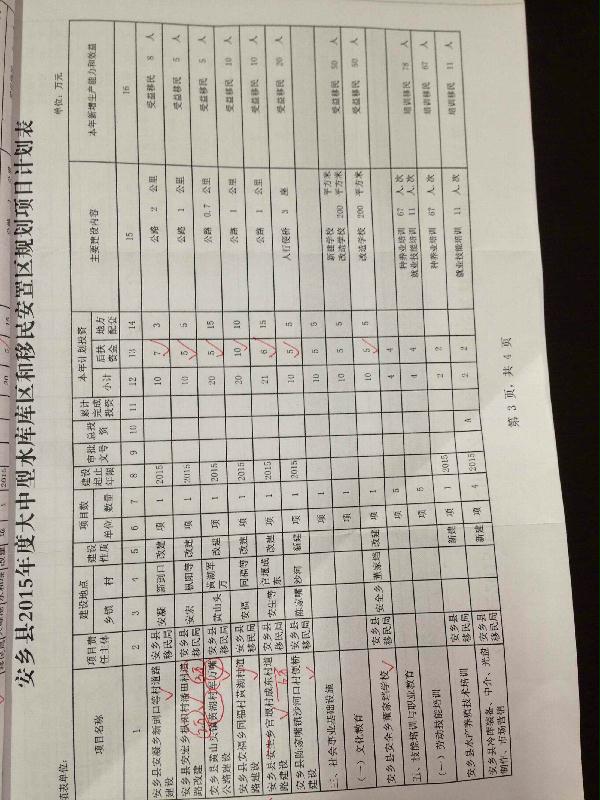 安乡县2015年度大中型水库库区和移民安置区规划项目计划表
填表单位: 单位：万元
项目名称 项目责任主体 建设地点 建设性质 项目数 建设起止年限 审批文号 总投资 累计完成投资 本年计划投资 主要建设内容 本年新增生产能力和效益
乡镇 村 单位 数量 小计 后扶资金 地方配套
1 2 3 4 5 6 7 8 9 10 11 12 13 14 15 16
安乡县安凝乡新剅口等村道路建设 安乡县移民局 安凝 新剅口 改建 项 1 2015 10 7 3 公路 2 公里 受益移民 8 人
路改建 安乡县移民局 安宏 等 改建 项 1 2015 10 5 5 公路 1 公里 受益移民 5 人
安乡县黄山头镇黄湖村 公路建设 安乡县移民局 黄山头 改建 项 1 2015 20 5 15 公路 0.7 公里 受益移民 5 人
安乡县安福乡同福村黄湖村道路建设 安乡县移民局 安福 同福等 改建 项 1 2015 20 10 10 公路 1 公里 受益移民 10 人
安乡县安生乡官堰村成东村道路建设 安乡县移民局 安生等 官堰成东 改建 项 1 2015 21 6 15 公路 1 公里 受益移民 10 人
安乡县陈家嘴镇沙河口村便桥建设 安乡县移民局 陈家嘴 沙河 新建 项 1 2015 10 5 5 人行便桥 3 座 受益移民 20 人
三、社会事业基础设施 项 1 10 5 5 新建学校 平方米
改造学校 200 平方米 受益移民 50 人
（一）文化教育 项 1 10 5 5
安乡县安全乡董家垱学校 安乡县移民局 安全乡 董家垱 改建 项 1 10 5 5 改造学校 200 平方米 受益移民 50 人
五、技能培训与职业教育 项 5 4 4 种养业培训 67 人.次
就业技能培训 11 人.次 培训移民 78 人
（一）劳动技能培训 项 5 4 4
安乡县水产养殖技术培训 安乡县移民局 新建 项 1 2015 2 2 种养业培训 67 人.次 培训移民 67 人
安乡县冷库装备、中介、光盘制作、市场营销 安乡县移民局 新建 项 4 2015 A 2 2 就业技能培训 11 人.次 培训移民 11 人
第 3 页，共 4 页